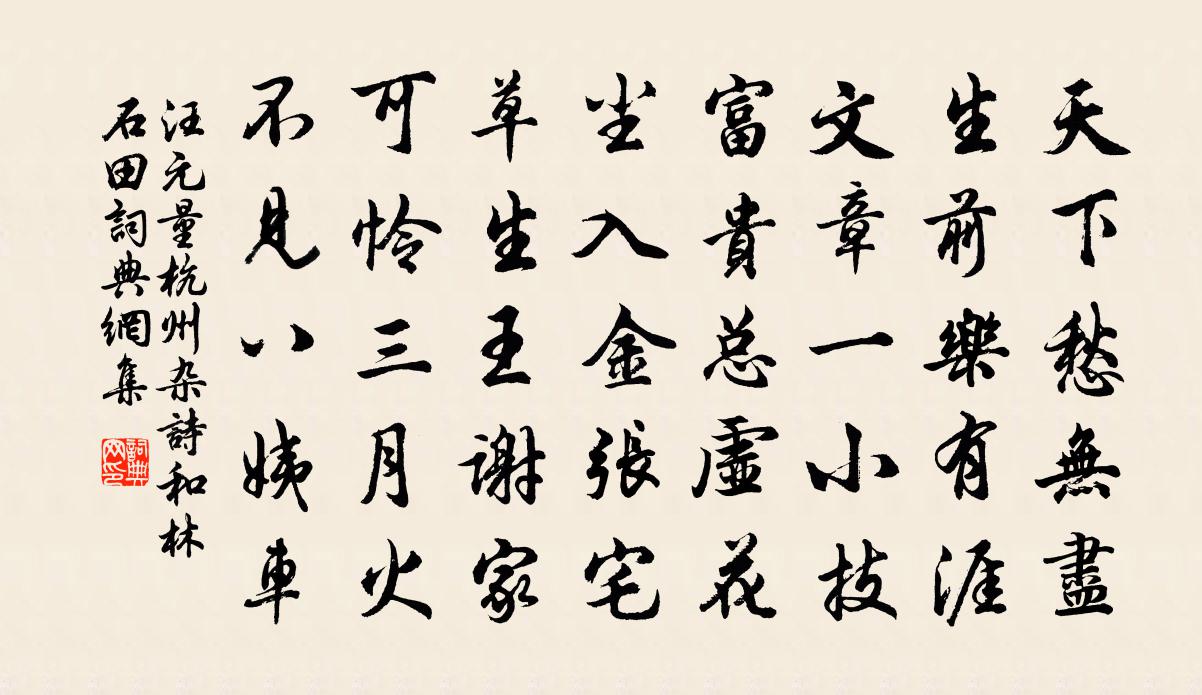 天下愁無盡
生前樂有涯
文章一小技
富貴总虛花
尘入金張宅
草生王謝家
可怜三月火
不見八姨車
汪元量杭州杂詩和林
石田詞典網集
詞典網印